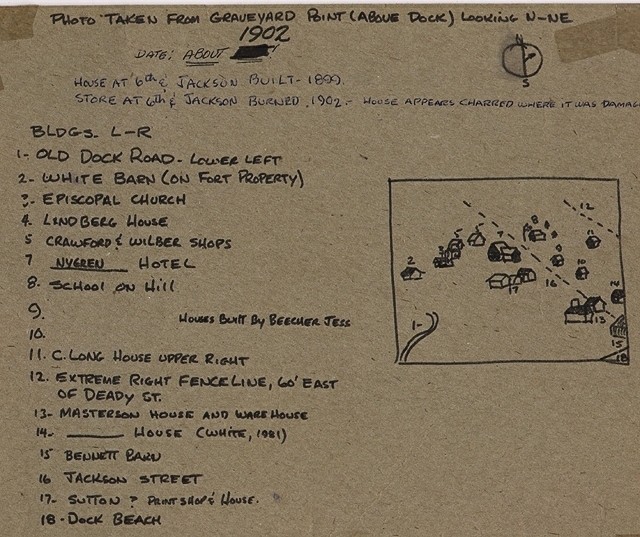 PHOTO TAKEN FROM GRAVEYARD POINT (ABOVE DOCK) LOOKING N-NE
1902
DATE: ABOUT
N
S
HOUSE AT 6th & JACKSON BUILT - 1899.
STORE AT 6th & JACKSON BURNED 1902 - HOUSE APPEARS CHARRED WHERE IT WAS DAMAG
BLDGS. L-R
1- OLD DOCK ROAD - LOWER LEFT
2- WHITE BARN (ON FORT PROPERTY)
3- EPISCOPAL CHURCH
4. LINDBERG HOUSE
5 CRAWFORD & WILBER SHOPS
7 NYGREN HOTEL
8. SCHOOL ON HILL
9.
HOUSES BUILT BY BEECHER JESS
10.
11. C. LONG HOUSE UPPER RIGHT
12. EXTREME RIGHT FENCELINE, 60' EAST
OF DEADY ST.
13- MASTERSON HOUSE AND WAREHOUSE
14- ______ HOUSE (WHITE, 1981)
15 BENNETT BARN
16 JACKSON STREET
17- SUTTON ? PRINT SHOP & HOUSE.
18- DOCK BEACH
12
8
7
11
2
9
10
17
16
13
15
18
1-